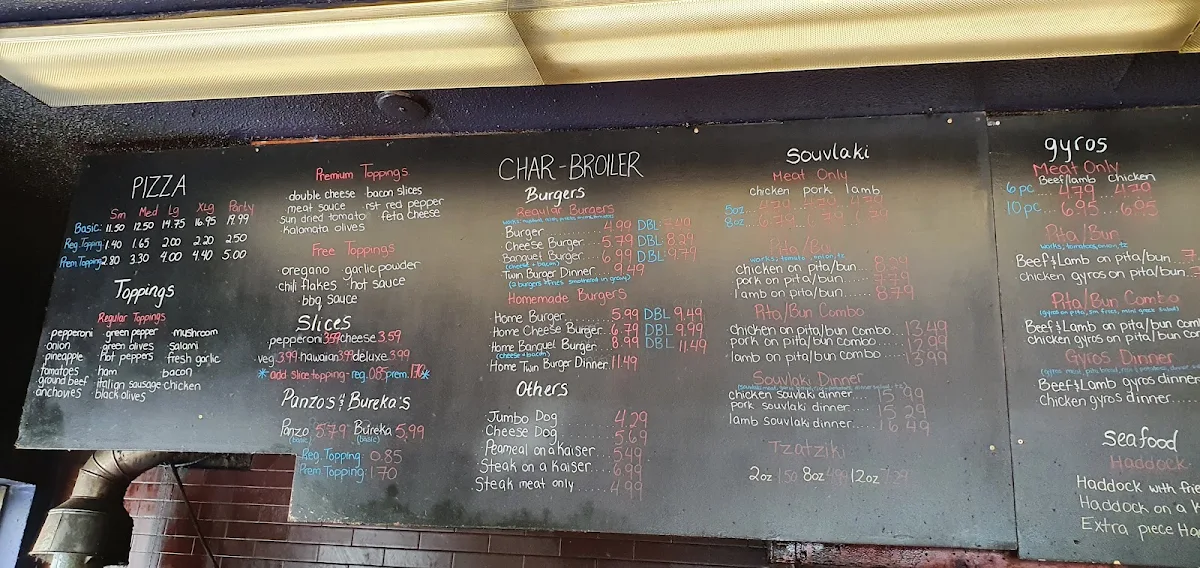 PIZZA
Sm Med Lg XLg Party
Basic: 11.50 12.50 14.75 16.95 19.99
Reg. Topping 1.40 1.65 2.00 2.20 2.50
Prem Topping 2.80 3.30 4.00 4.40 5.00
Toppings
Regular Toppings
pepperoni green pepper mushroom
onion green olives salami
pineapple hot peppers fresh garlic
tomatoes ham bacon
ground beef italian sausage chicken
anchovies black olives
Premium Toppings
double cheese bacon slices
meat sauce rst red pepper
sun dried tomato feta cheese
kalamata olives
Free Toppings
oregano garlic powder
chili flakes hot sauce
bbq sauce
Slices
pepperoni 3.59 cheese 3.59
veg 3.99 hawaiian 3.99 deluxe 3.99
*add slice topping - reg. 0.85 prem. 1.70*
Panzo's & Bureka's
Panzo 5.79 Bureka 5.99
(basic) (basic)
Reg. Topping: 0.85
Prem. Topping: 1.70
CHAR-BROILER
Burgers
Regular Burgers
Burger 4.99 DBL 7.49
Cheese Burger 5.79 DBL 8.24
Banquet Burger 6.99 DBL 9.79
(cheese & bacon)
Twin Burger Dinner 9.49
(2 burgers & fries smothered in gravy)
Homemade Burgers
Home Burger 5.99 DBL 9.49
Home Cheese Burger 6.79 DBL 9.99
Home Banquet Burger 8.99 DBL 11.49
(cheese & bacon)
Home Twin Burger Dinner 11.49
Others
Jumbo Dog 4.29
Cheese Dog 5.69
Peameal on a Kaiser 5.49
Steak on a Kaiser 6.99
Steak meat only 4.99
Souvlaki
Meat Only
chicken pork lamb
5oz 4.79
8oz 6.79
Pita/Bun
works; tomato, onion, tz
chicken on pita/bun
pork on pita/bun
lamb on pita/bun 8.79
Pita/Bun Combo
chicken on pita/bun combo 13.49
pork on pita/bun combo 12.99
lamb on pita/bun combo 13.99
Souvlaki Dinner
chicken souvlaki dinner 15.99
pork souvlaki dinner 15.29
lamb souvlaki dinner 16.49
Tzatziki
2oz 1.50 8oz 4.99 12oz 7.29
gyros
Meat Only
Beef/lamb Chicken
6pc 4.79 4.79
10pc 6.95 6.95
Pita/Bun
works; tomatoes, onion, tz
Beef & Lamb on pita/bun 7.
chicken gyros on pita/bun
Pita/Bun Combo
(gyros on pita, sm fries, mini greek salad)
Beef & Lamb on pita/bun com
chicken on pita/bun com
Gyros Dinner
Beef & Lamb gyros dinner
Chicken gyros dinner
Seafood
Haddock
Haddock with frie
Haddock on a K
Extra piece Ha